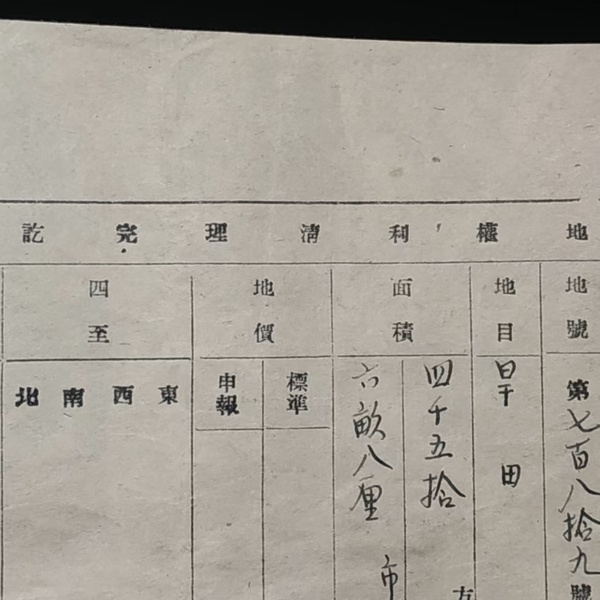 地權利清理完訖
地號
第七百八拾九號
地目
旱田
面積
四千五拾
方
六畝八厘
市
地價
標準
申報
四至
東西南北